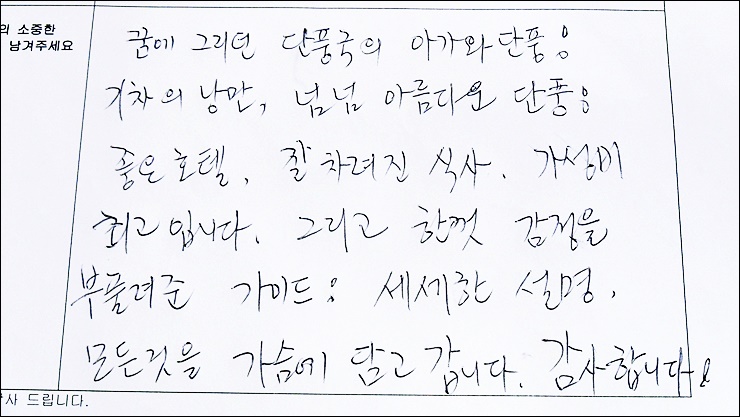 의 소중한
남겨주세요
꿈에 그리던 단풍국의 아가와단풍!
기차의 낭만, 넘넘 아름다운 단풍!
좋은호텔, 잘차려진 식사. 가성비
최고입니다. 그리고 한껏 감정을
부풀려준 가이드: 세세한 설명.
모든것을 가슴에 담고 갑니다. 감사합니다
사 드립니다.